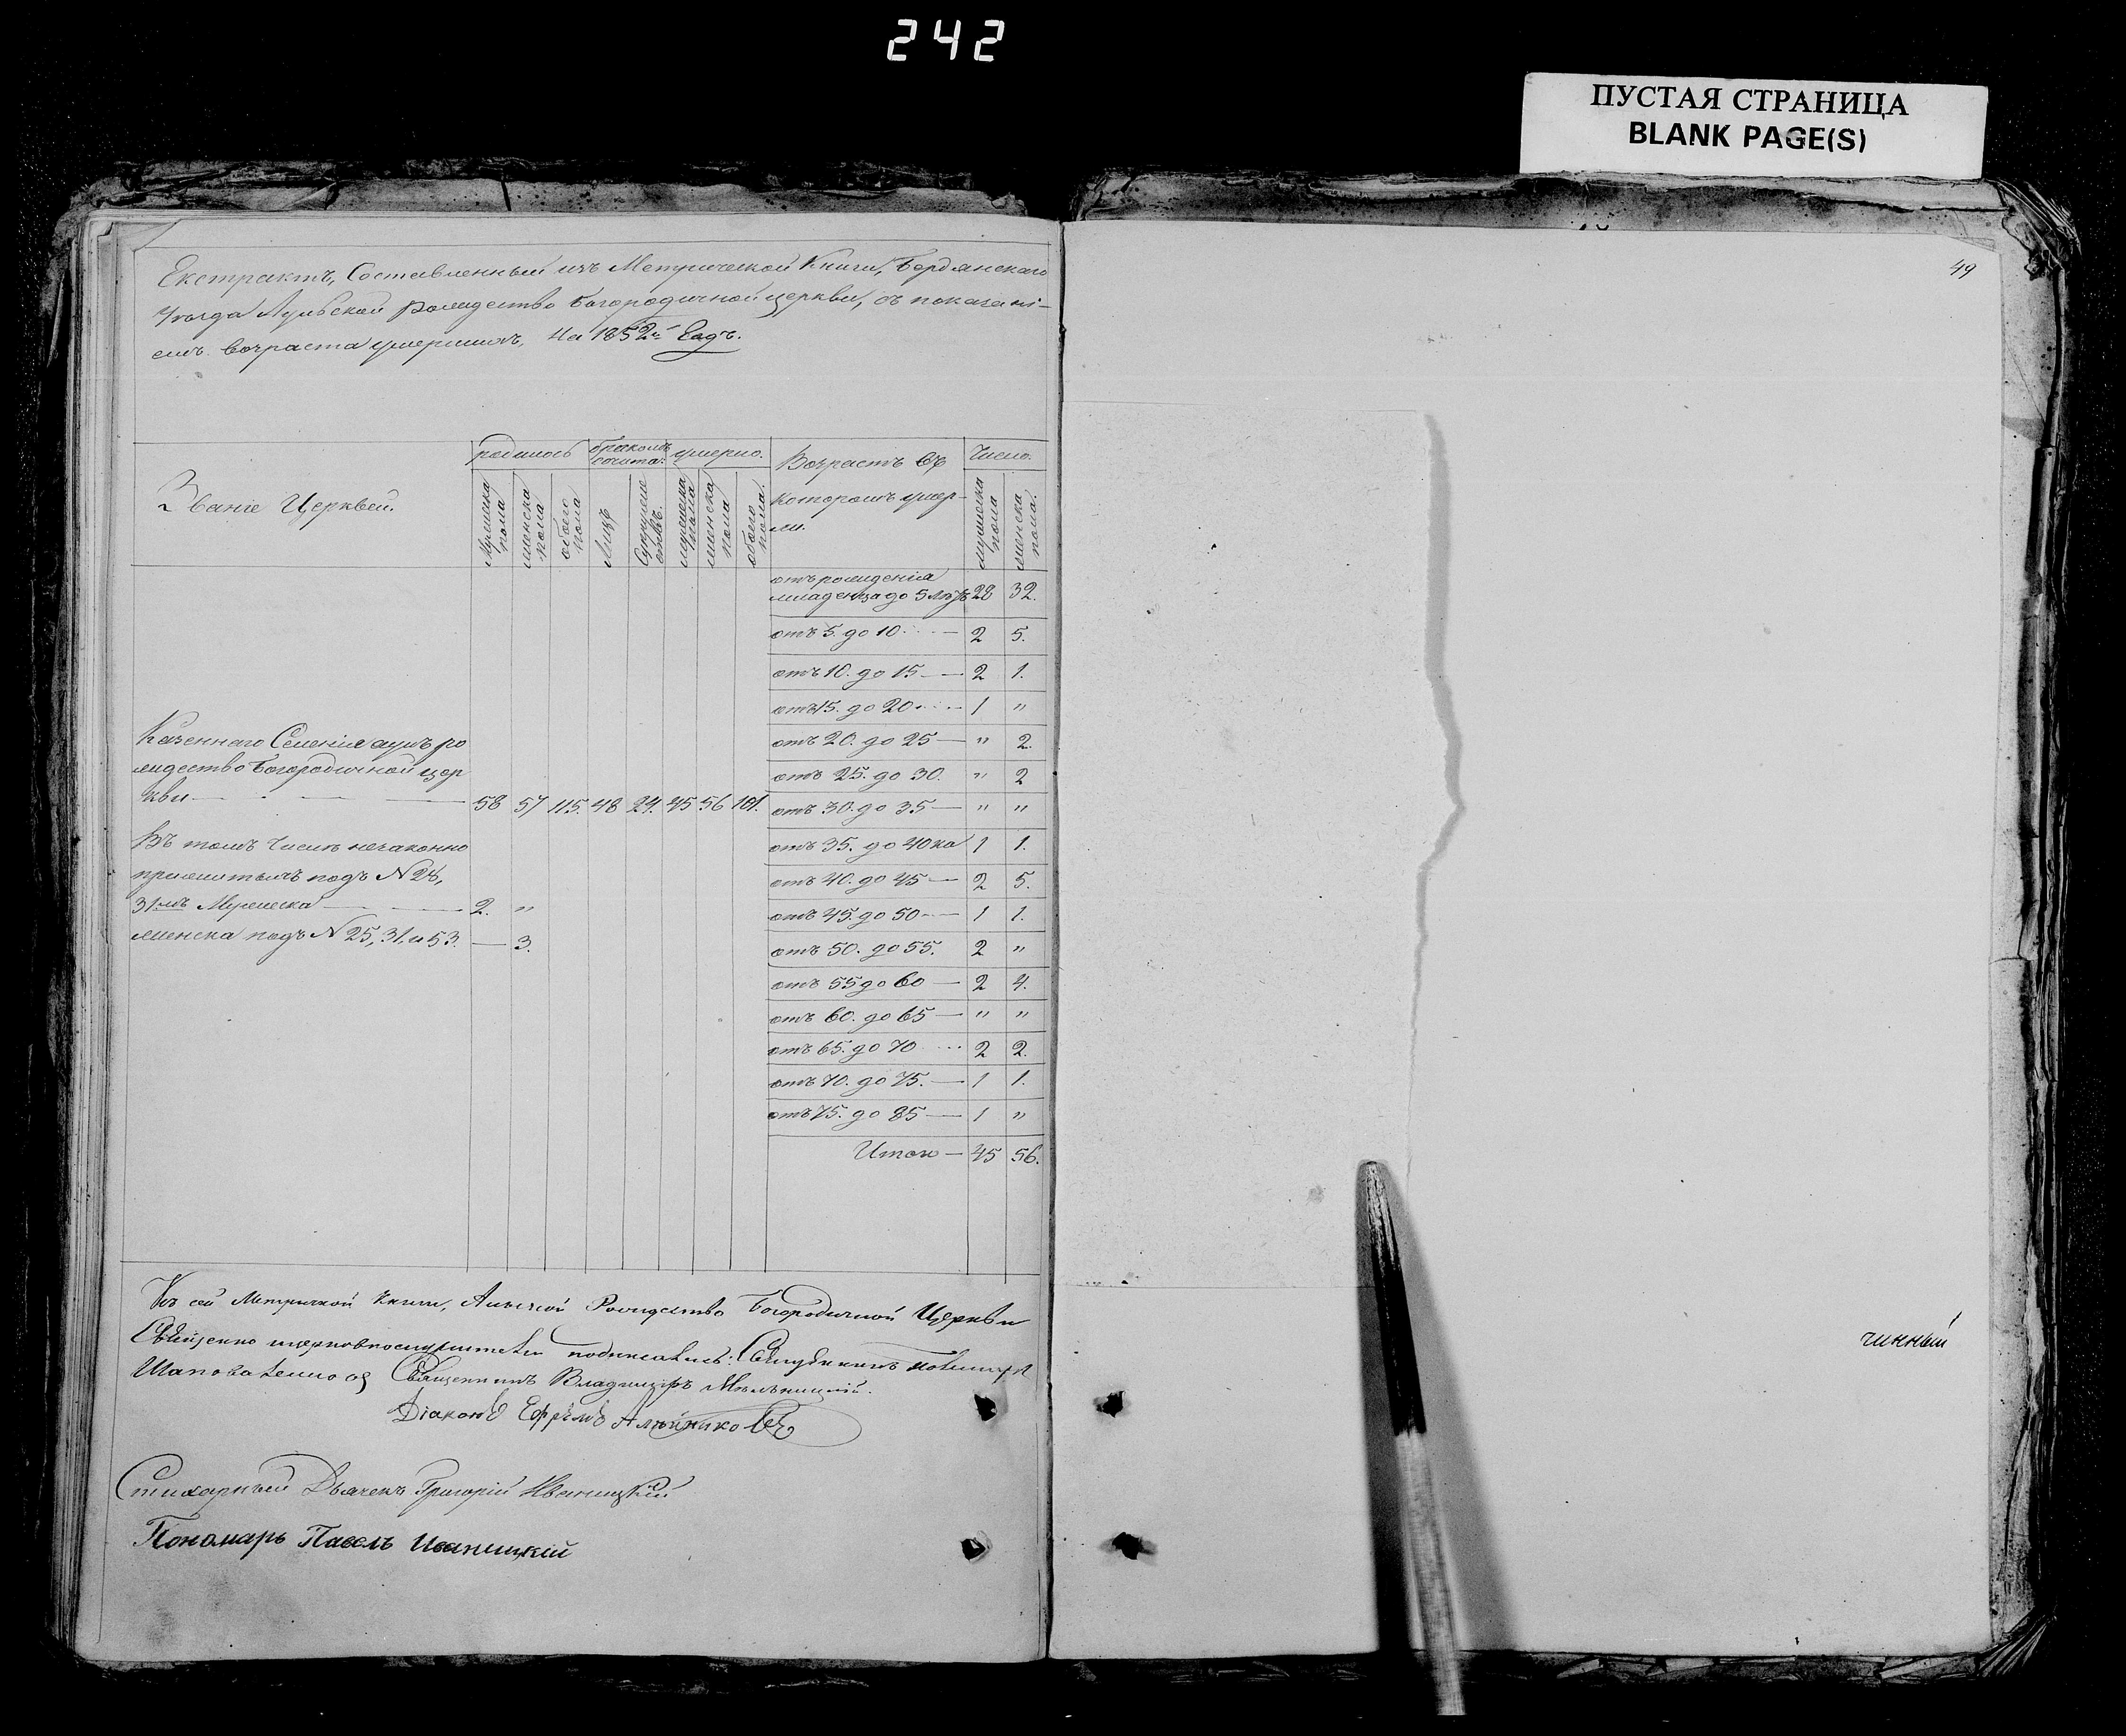 242
ПУСТАЯ СТРАНИЦА
BLANK PAGE(S)
49
Екстрактъ, Составленный изъ Метрической Книги, Бердянскаго
Уѣзда Рождество Богородичной церкви, съ показані-
емъ возраста умершихъ, На 1852й Годъ.
Званіе Церквей.
родилось
бракомъ сочета:
умерло.
Возрастъ въ
которомъ умер-
ли.
Число.
Мужеска пола
женска пола
обоего пола
Лицъ
Супружествъ.
мужеска пола
женска пола
обоего пола.
мужеска пола
женска пола.
отъ рожденія
младенца до 5 лѣтъ 28 32.
отъ 5. до 10 — 2 5.
отъ 10. до 15 — 2 1.
отъ 15. до 20 — 1 "
отъ 20. до 25 — " 2.
отъ 25. до 30. " 2
отъ 30. до 35 — " "
отъ 35. до 40 1 1.
отъ 40. до 45 — 2 5.
отъ 45. до 50 — 1 1.
отъ 50. до 55. 2 "
отъ 55 до 60 — 2 4.
отъ 60. до 65 — " "
отъ 65. до 70 2 2.
отъ 70. до 75. — 1 1.
отъ 75. до 85 — 1 "
Итого — 45 56.
Казеннаго Селенія ро
ждество Богородичной цер
кви — 58 57 115. 48 24. 45 56 101.
Въ томъ числѣ незаконно
прижитыхъ подъ N 28,
31.мъ Мужеска — 2. "
женска подъ N 25, 31. и 53. — 3.
Къ сей Метрической книги, Рождество Богородичной Церкви
Священно церковнослужители подписались:
Священникъ Владимиръ Мѣльницкій.
Діаконъ Ефремъ Алейниковъ
Стихарный Дьячекъ Григорій Иваницкій
Пономарь Павелъ Иваницкій
чинный